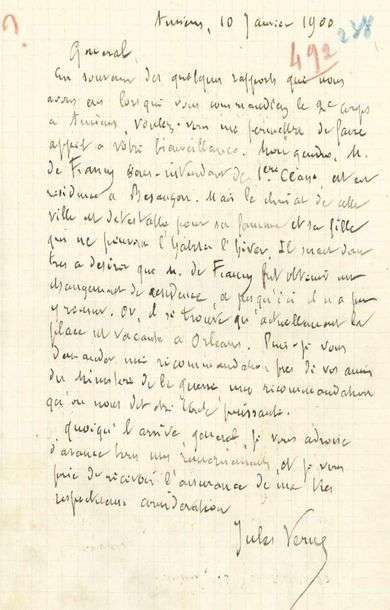 ?
Amiens, 10 Janvier 1900
492 238
Général,
En souvenir des quelques rapports que nous
avons eus lorsque vous commandiez le 2e corps
à Amiens, voulez-vous me permettre de faire
appel à votre bienveillance. Mon gendre, M.
de Francy sous-intendant de 1ère Classe est en
résidence à Besançon. Mais le climat de cette
ville est détestable pour sa femme et sa fille
qui ne peuvent l'habiter l'hiver. Il serait donc
très à désirer que M. de Francy pût obtenir un
changement de résidence, et jusqu'ici il n'a pu
y réussir. Or, il se trouve qu'actuellement la
place est vacante à Orléans. Puis-je vous
demander une recommandation près de vos amis
du Ministère de la guerre une recommandation
qu'on nous dit être toute puissante.
Quoiqu'il arrive, général, je vous adresse
d'avance tous mes remerciements, et je vous
prie de recevoir l'assurance de ma très
respectueuse considération
Jules Verne